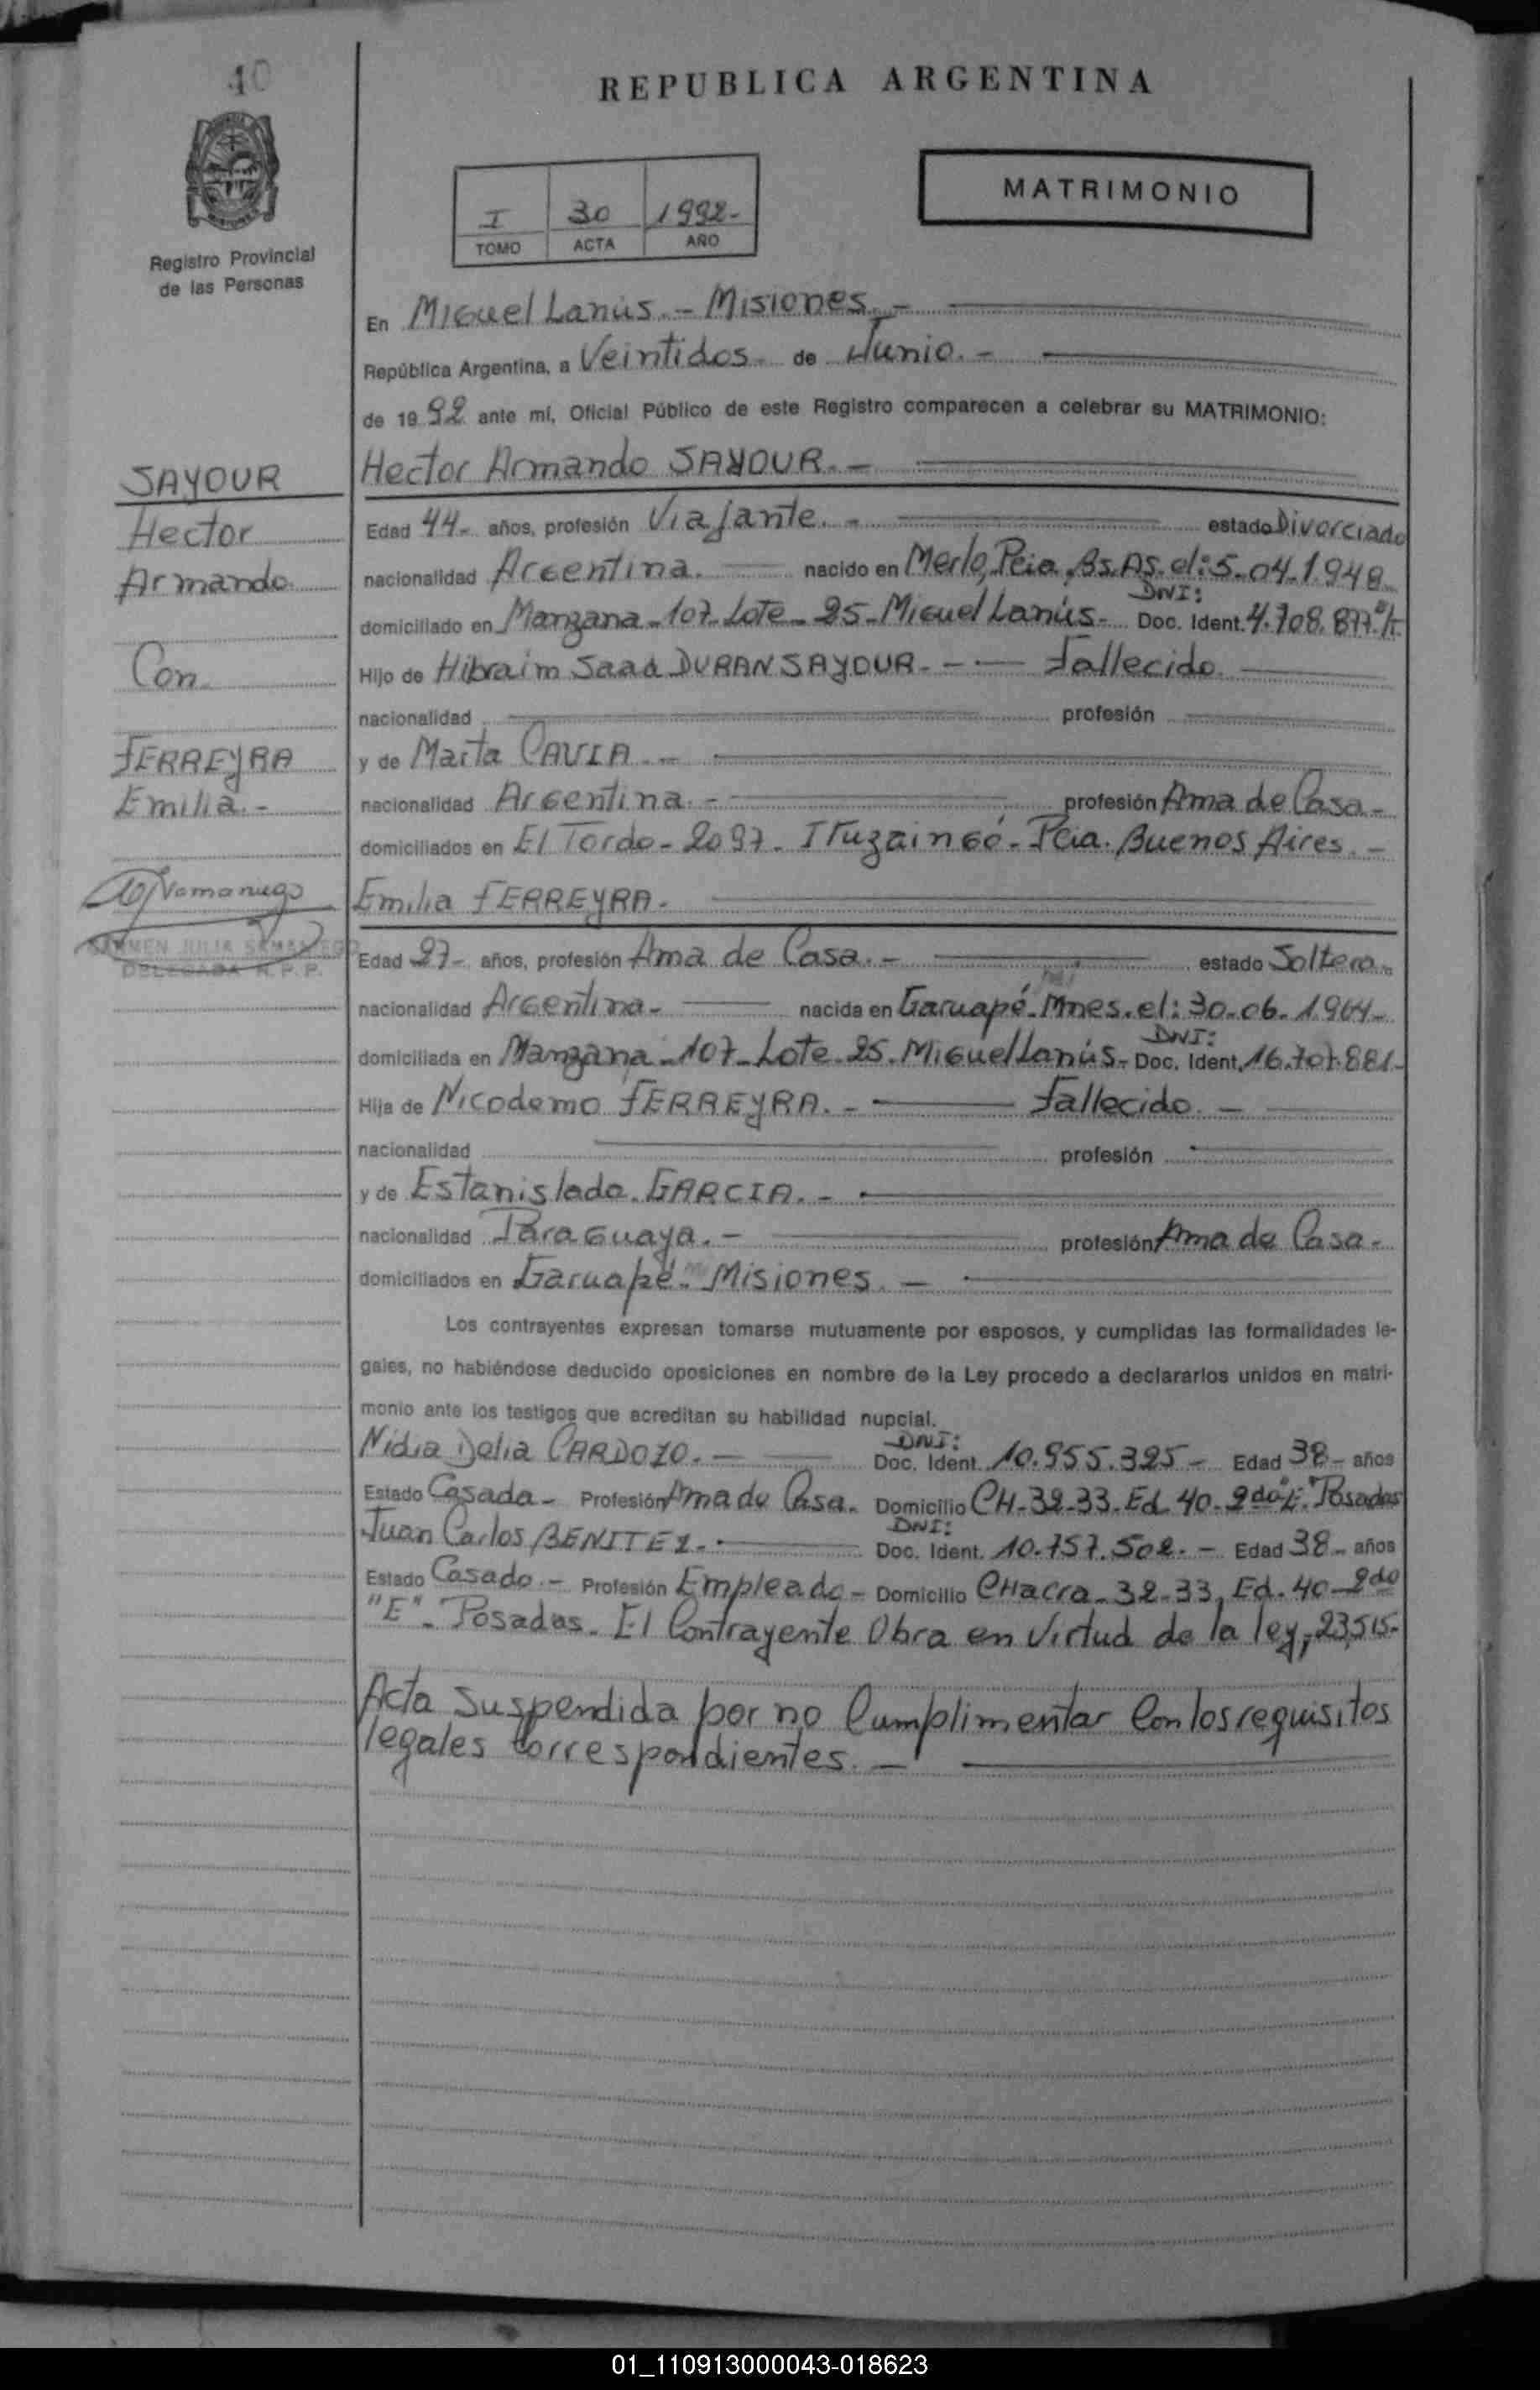 40
REPUBLICA ARGENTINA
MATRIMONIO
I 30 1992-
TOMO ACTA AÑO
Registro Provincial
de las Personas
En Miguel Lanús.- Misiones.-
República Argentina, a Veintidos- de Junio.-
de 1992 ante mí, Oficial Público de este Registro comparecen a celebrar su MATRIMONIO:
SAYOUR
Hector
Armando.
Con.
FERREYRA
Emilia.-
CARMEN JULIA SAMANIEGO
DELEGADA R. P. P.
Hector Armando SAYOUR.-
Edad 44- años, profesión Viajante.- estado Divorciado
nacionalidad Argentina. nacido en Merlo, Pcia. Bs.As. el: 5-04-1.948-
domiciliado en Manzana-107-Lote-25-Miguel Lanús- Doc. Ident. DNI: 4.708.877.
Hijo de Hibraim Saad DURAN SAYOUR.- Fallecido.
nacionalidad profesión
y de Marta CAVIA.-
nacionalidad Argentina.- profesión Ama de Casa-
domiciliados en El Tordo-2097- Ituzaingó- Pcia. Buenos Aires.-
Emilia FERREYRA.
Edad 27- años, profesión Ama de Casa.- estado Soltera.
nacionalidad Argentina- nacida en Garuapé-Mnes. el: 30-06-1.964-
domiciliada en Manzana-107-Lote-25-Miguel Lanús- Doc. Ident. DNI: 16.707.881-
Hija de Nicodemo FERREYRA.- Fallecido.-
nacionalidad profesión
y de Estanislada. GARCIA.-
nacionalidad Paraguaya.- profesión Ama de Casa-
domiciliados en Garuapé- Misiones.-
Los contrayentes expresan tomarse mutuamente por esposos, y cumplidas las formalidades le-
gales, no habiéndose deducido oposiciones en nombre de la Ley procedo a declararlos unidos en matri-
monio ante los testigos que acreditan su habilidad nupcial.
Nidia Delia CARDOZO.- Doc. Ident. DNI: 10.955.325- Edad 38- años
Estado Casada- Profesión Ama de Casa. Domicilio CH-32-33-Ed. 40-2do "E". Posadas
Juan Carlos BENITEZ.- Doc. Ident. DNI: 10.757.502.- Edad 38- años
Estado Casado.- Profesión Empleado- Domicilio CHacra-32-33, Ed. 40-2do
"E"- Posadas- El Contrayente Obra en Virtud de la ley, 23,515-
Acta Suspendida por no Cumplimentar Con los requisitos
legales correspondientes.-
01_110913000043-018623